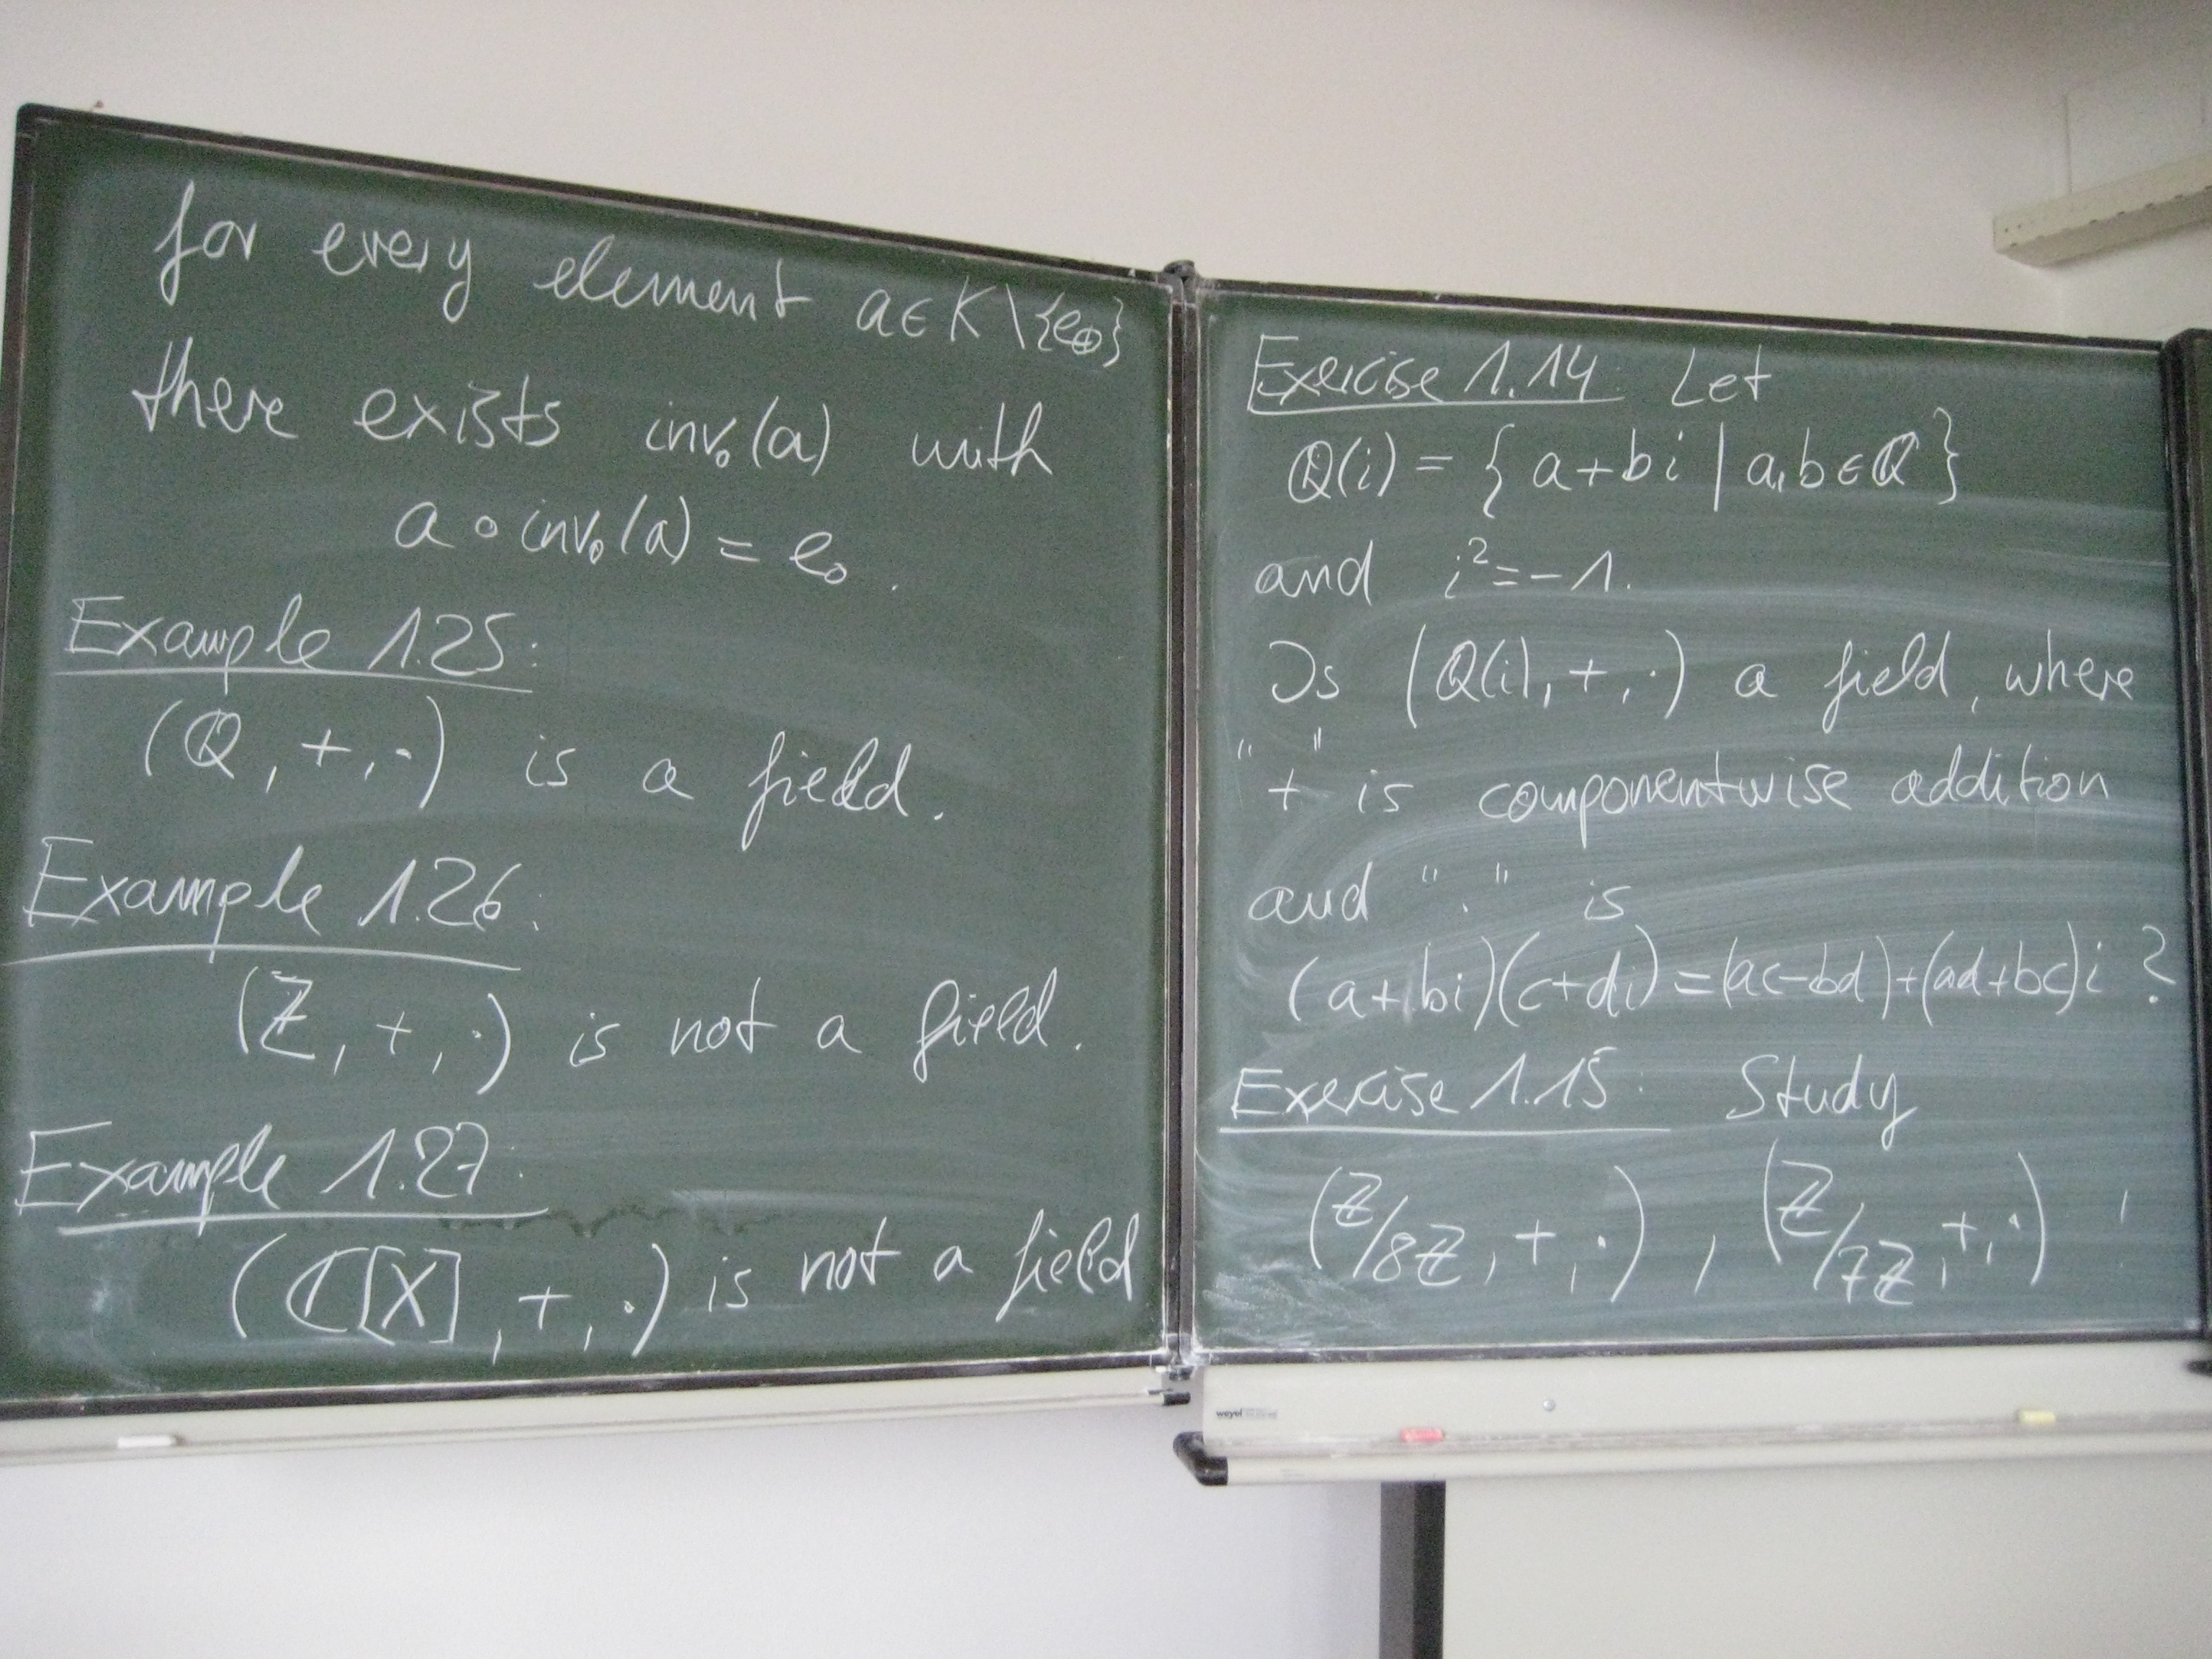 for every element a∈K\{e⊕}
there exists inv∘(a) with
a∘inv∘(a) = e∘.
Example 1.25:
(ℚ, +, ·) is a field.
Example 1.26:
(ℤ, +, ·) is not a field.
Example 1.27:
(ℂ[X], +, ·) is not a field
Exercise 1.14: Let
ℚ(i) = { a+bi | a,b∈ℚ }
and i²=-1.
Is (ℚ(i), +, ·) a field, where
"+" is componentwise addition
and "·" is
(a+bi)(c+di)=(ac-bd)+(ad+bc)i ?
Exercise 1.15: Study
(ℤ/8ℤ, +, ·), (ℤ/7ℤ, +, ·) !
weyel